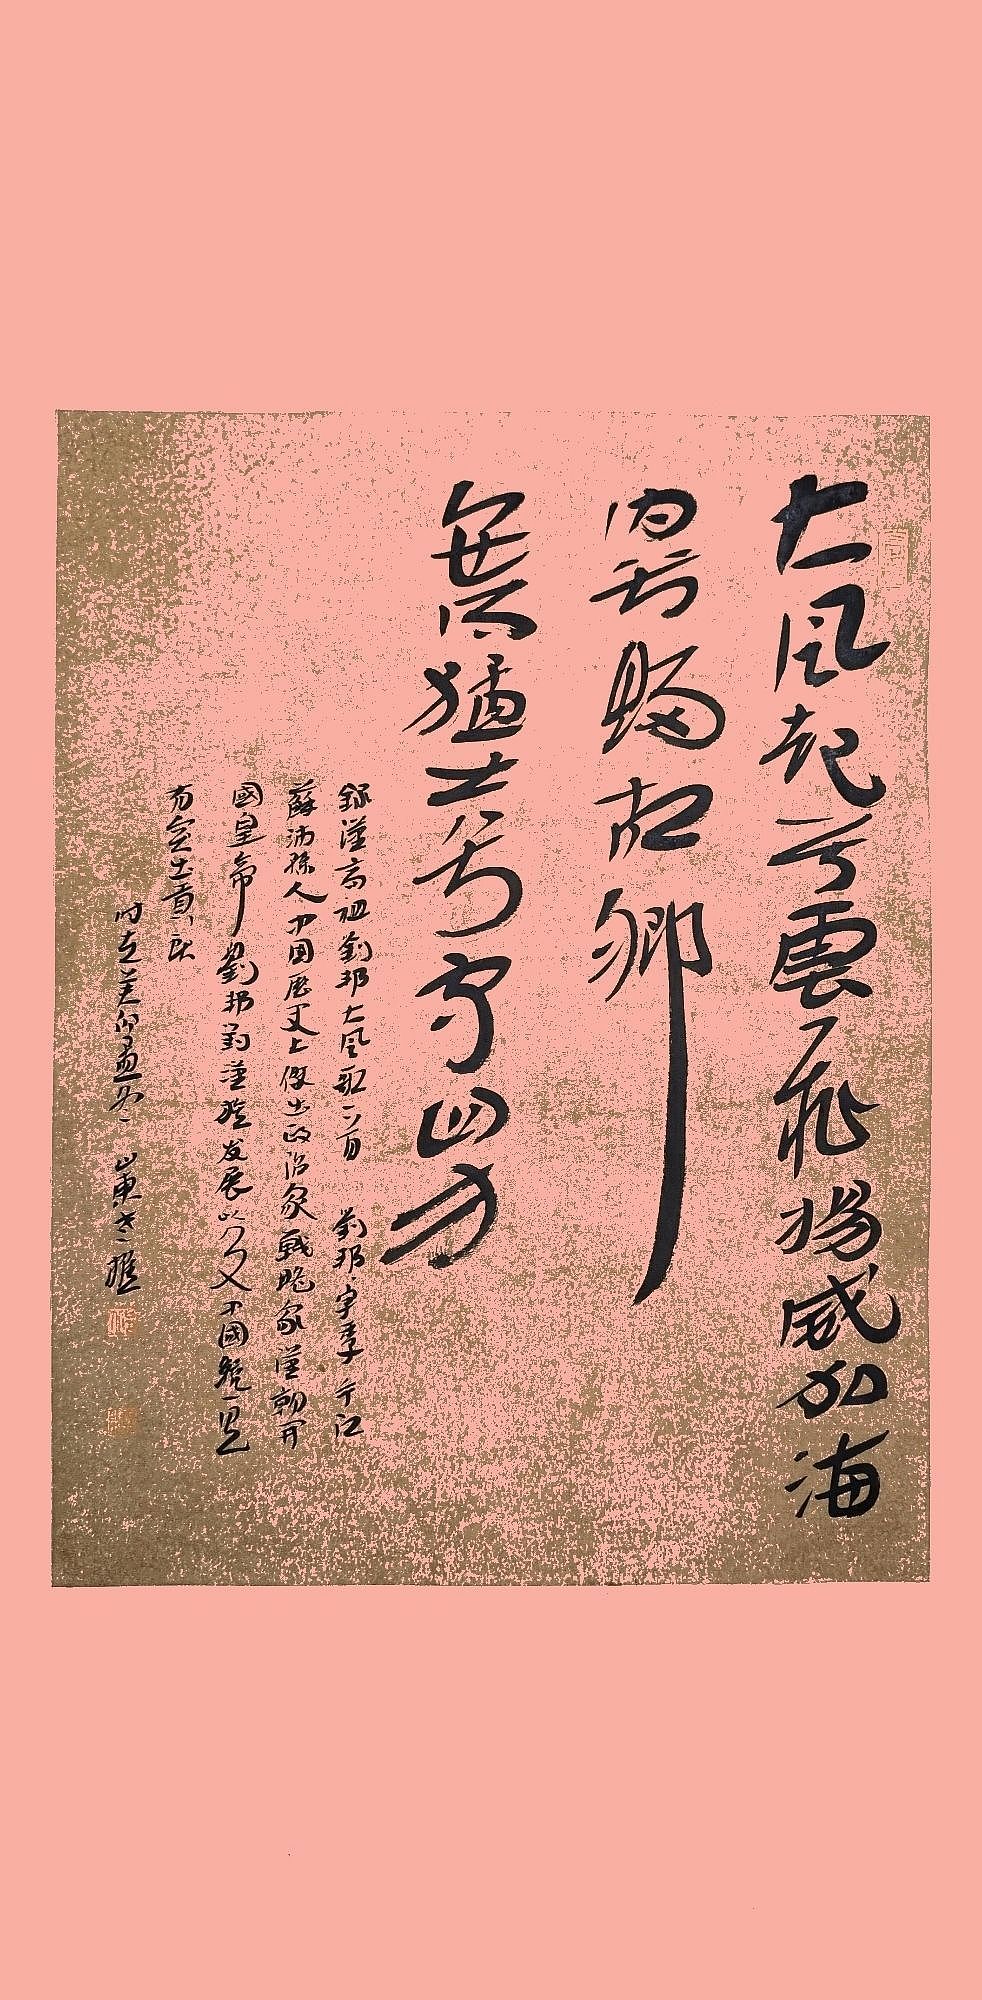 大風起兮雲飛揚威加海
内兮歸故鄉
猛士兮守四方
錄漢高祖劉邦大風歌一首 劉邦字季 今江
蘇沛縣人中國歷史上傑出政治家戰略家漢朝開
國皇帝劉邦對漢族发展以及中國統一
有突出貢献
时在癸卯孟冬 山東